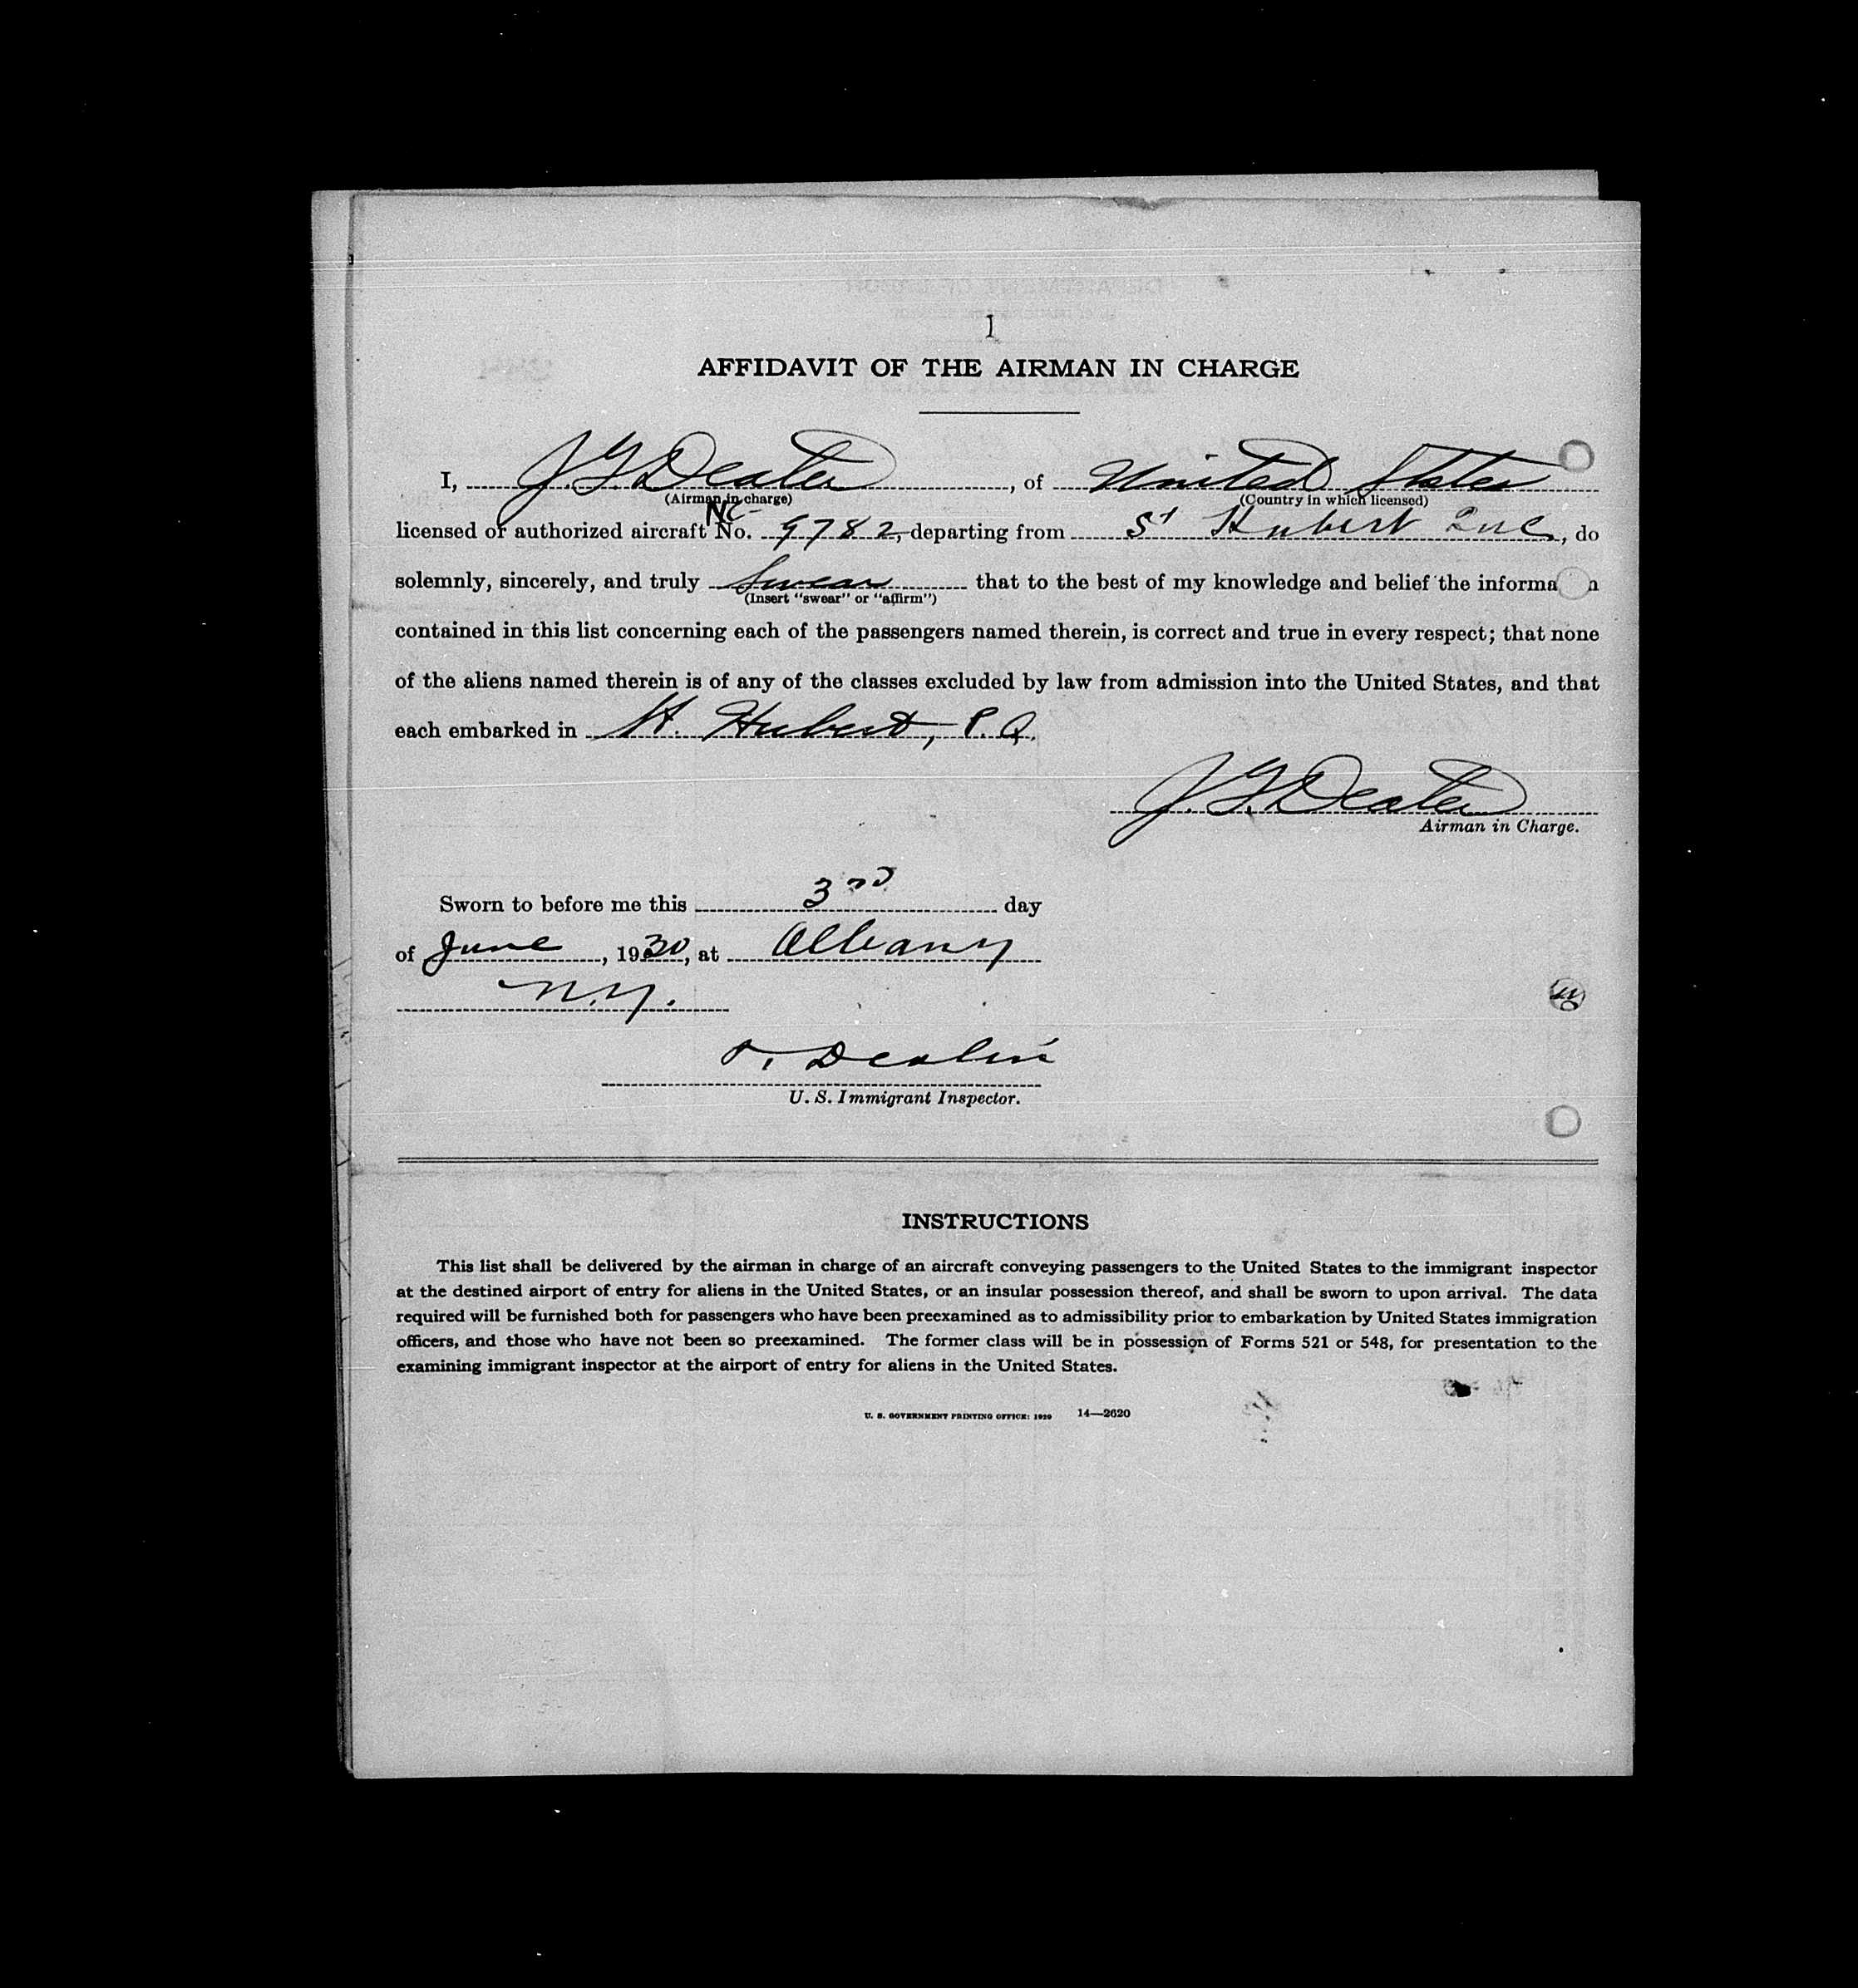 1
AFFIDAVIT OF THE AIRMAN IN CHARGE
I, J. G. Dexter, of United States
(Airman in charge) (Country in which licensed)
NC
licensed or authorized aircraft No. 9782, departing from St Hubert Que, do
solemnly, sincerely, and truly Swear that to the best of my knowledge and belief the informa n
(Insert "swear" or "affirm")
contained in this list concerning each of the passengers named therein, is correct and true in every respect; that none
of the aliens named therein is of any of the classes excluded by law from admission into the United States, and that
each embarked in St. Hubert, P.Q.
J. G. Dexter
Airman in Charge.
Sworn to before me this 3rd day
of June, 1930, at Albany
N.Y.
U. S. Immigrant Inspector.
INSTRUCTIONS
This list shall be delivered by the airman in charge of an aircraft conveying passengers to the United States to the immigrant inspector
at the destined airport of entry for aliens in the United States, or an insular possession thereof, and shall be sworn to upon arrival. The data
required will be furnished both for passengers who have been preexamined as to admissibility prior to embarkation by United States immigration
officers, and those who have not been so preexamined. The former class will be in possession of Forms 521 or 548, for presentation to the
examining immigrant inspector at the airport of entry for aliens in the United States.
U. S. GOVERNMENT PRINTING OFFICE: 1929 14—2620